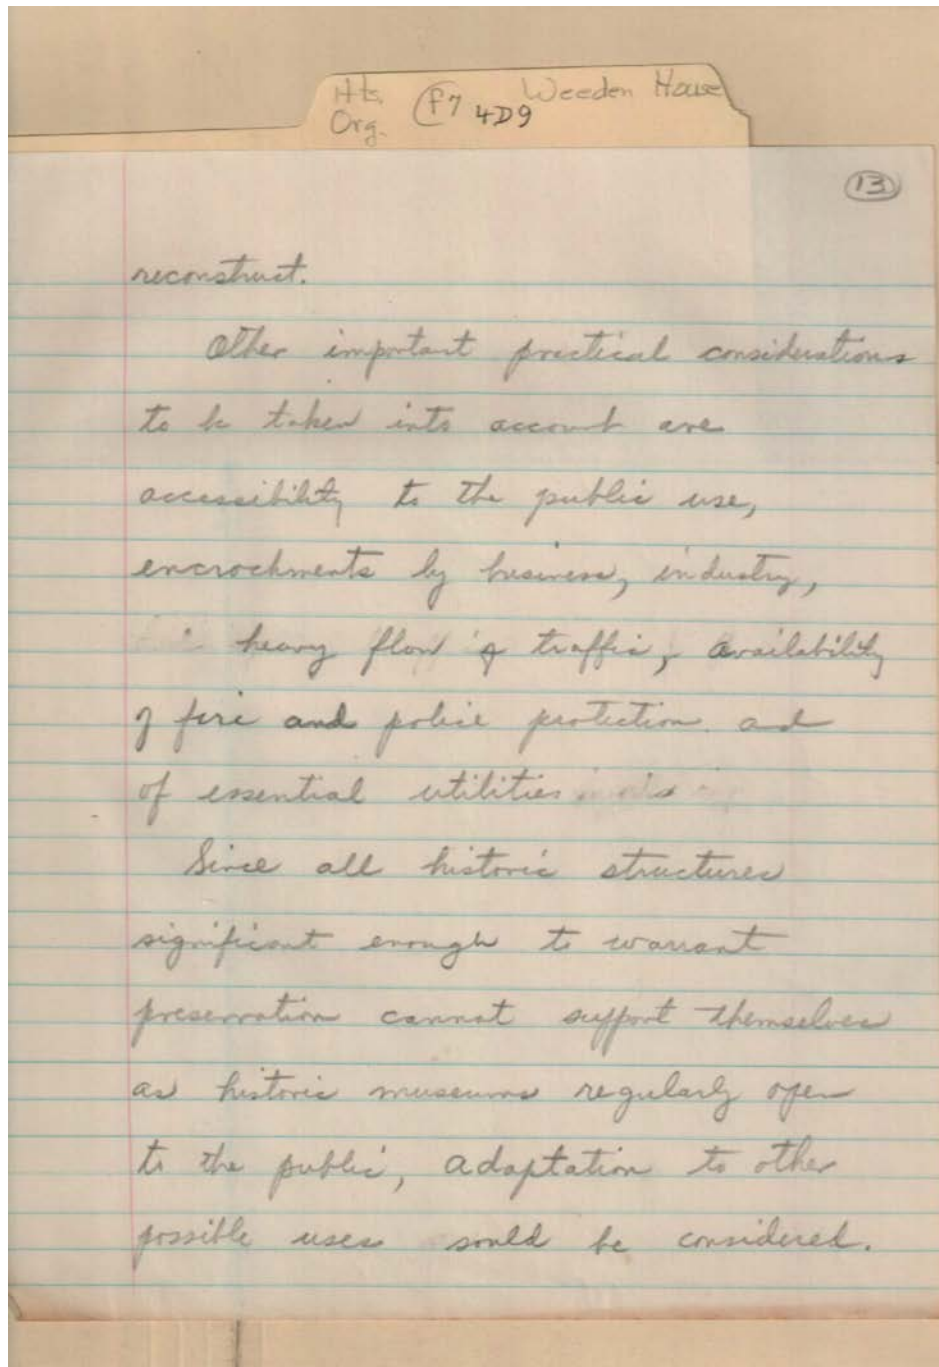 Hts. Org. F7 4D9 Weeden House
13
reconstruct.
Other important practical considerations
to be taken into account are
accessibility to the public use,
encrochments by business, industry,
heavy flow of traffic, availability
of fire and police protection and
of essential utilities
Since all historic structures
significant enough to warrant
preservation cannot support themselves
as historic museums regularly open
to the public, adaptation to other
possible uses sould be considered.